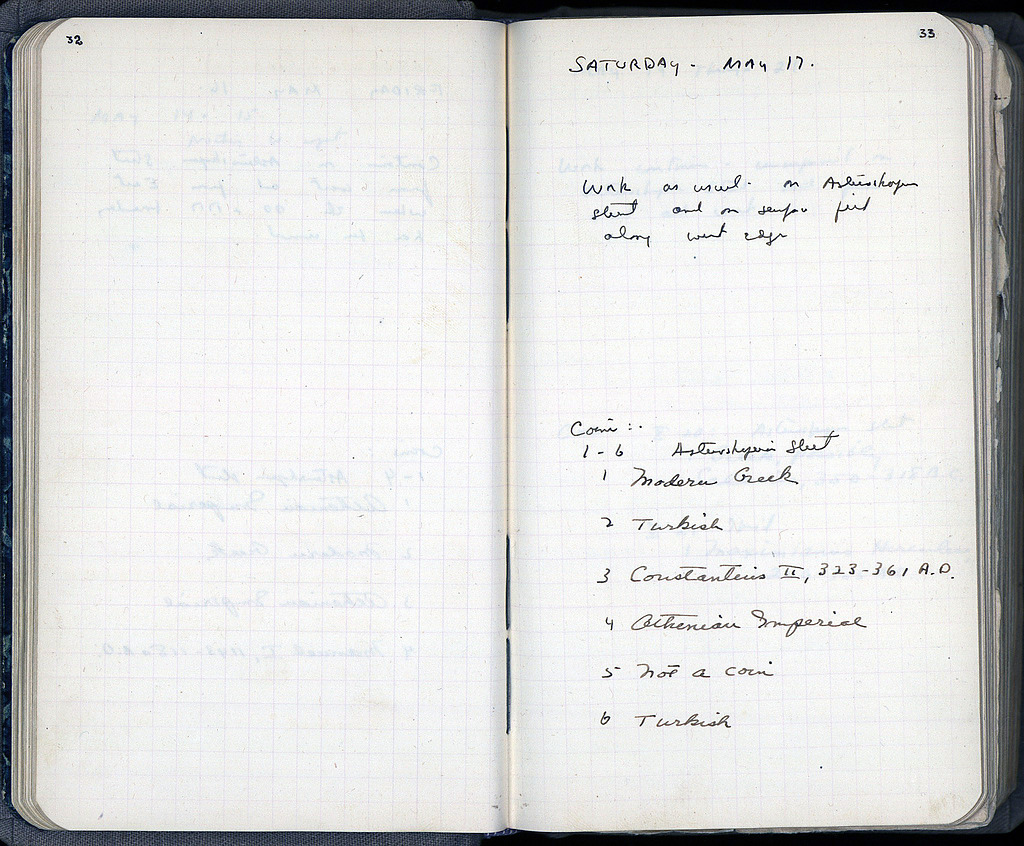 32
33
SATURDAY. MAY 17.
Work as usual. on Asteroskopeion
street and on
along west edge
Coins:
1-6 Asteroskopeion Street
1 Modern Greek
2 Turkish
3 Constantius II, 323-361 A.D.
4 Athenian Imperial
5 Not a coin
6 Turkish